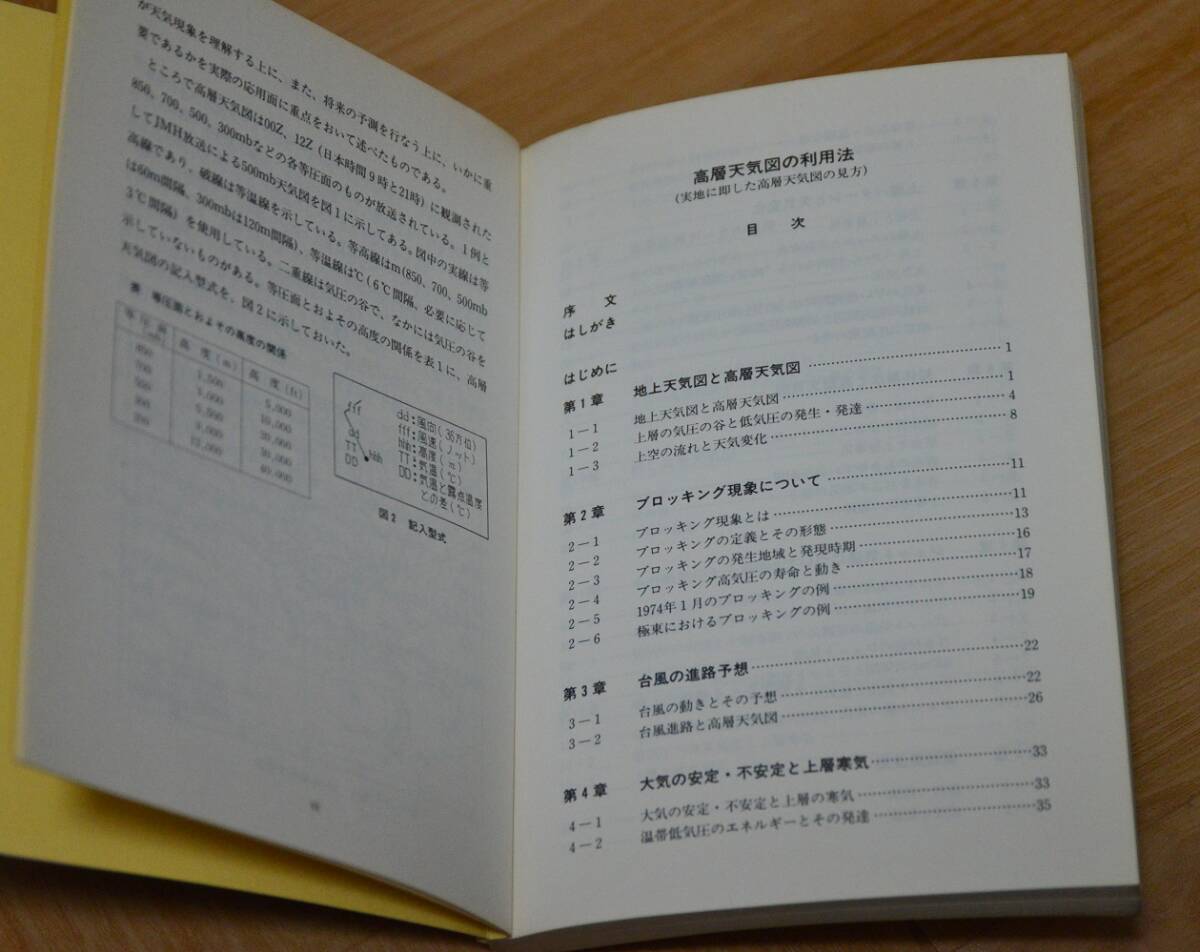 が天気現象を理解する上に、また、将来の予測を行なう上に、いかに重
要であるかを実際の応用面に重点をおいて述べたものである。
ところで高層天気図は00Z、12Z（日本時間9時と21時）に観測された
850、700、500、300mbなどの各等圧面のものが放送されている。1例と
してJMH放送による500mb天気図を図1に示してある。図中の実線は等
高線であり、破線は等温線を示している。等高線はm(850、700、500mb
は60m間隔、300mbは120m間隔)、等温線は℃(6℃間隔、必要に応じて
3℃間隔)を使用している。二重線は気圧の谷で、なかには気圧の谷を
示していないものがある。等圧面とおよその高度の関係を表1に、高層
天気図の記入型式を、図2に示しておいた。
表 等圧面とおよその高度の関係
等圧面 高度(m) 高度(ft)
850 1,500 5,000
700 3,000 10,000
500 5,500
300 9,000 30,000
40,000
fff
dd
TT hhh
DD
dd:風向(36方位)
fff:風速(ノット)
hhh:高度(m)
TT:気温(℃)
DD:気温と露点温度
との差(℃)
図2 記入型式
高層天気図の利用法
(実地に即した高層天気図の見方)
目 次
序 文
はしがき
はじめに
第1章 地上天気図と高層天気図……1
1－1 地上天気図と高層天気図……1
1－2 上層の気圧の谷と低気圧の発生・発達……4
1－3 上空の流れと天気変化……8
第2章 ブロッキング現象について……11
2－1 ブロッキング現象とは……11
2－2 ブロッキングの定義とその形態……13
2－3 ブロッキングの発生地域と発現時期……16
2－4 ブロッキング高気圧の寿命と動き……17
2－5 1974年1月のブロッキングの例……18
2－6 極東におけるブロッキングの例……19
第3章 台風の進路予想……22
3－1 台風の動きとその予想……22
3－2 台風進路と高層天気図……26
第4章 大気の安定・不安定と上層寒気……33
4－1 大気の安定・不安定と上層の寒気……33
4－2 温帯低気圧のエネルギーとその発達……35